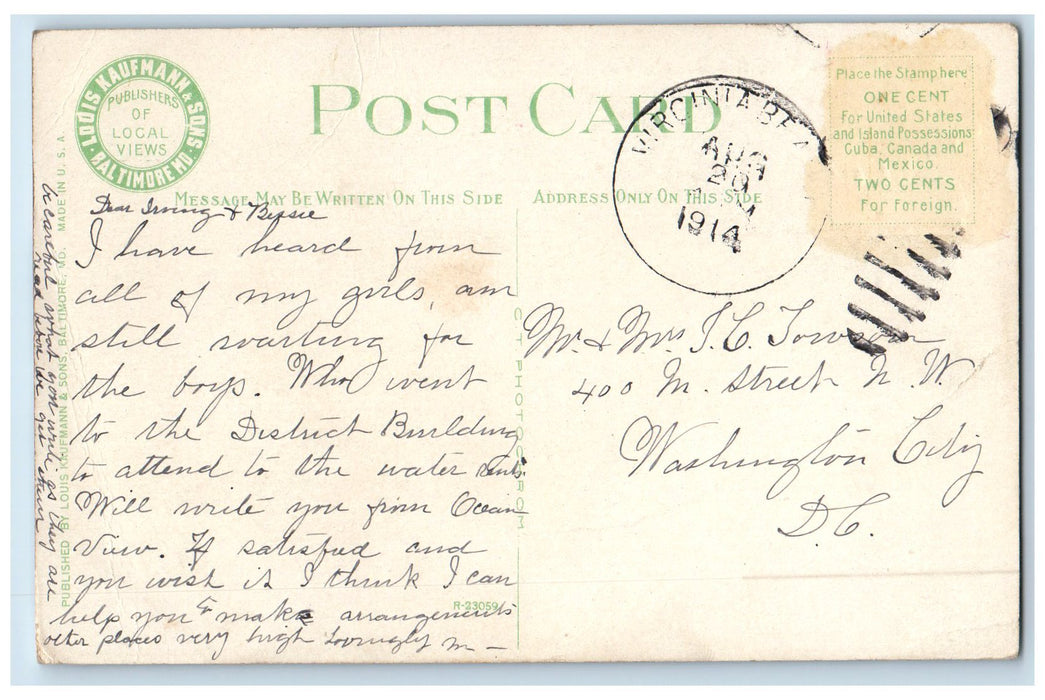 LOUIS KAUFMANN & SONS
BALTIMORE MD.
PUBLISHERS
OF
LOCAL
VIEWS
POST CARD
MESSAGE MAY BE WRITTEN ON THIS SIDE
ADDRESS ONLY ON THIS SIDE
Place the Stamp here
ONE CENT
For United States
and Island Possessions
Cuba, Canada and
Mexico.
TWO CENTS
For Foreign.
VIRGINIA BEA
AUG
20
M
1914
Dear Irving & Bessie
I have heard from
all of my girls, am
still waiting for
the boys. Who went
to the District Building
to attend to the water rents.
Will write you from Ocean
View. If satisfied and
you wish it I think I can
help you to make arrangements
other places very high Lovingly M—
be careful what you write as they are
read before we get them
Mr. & Mrs I. C. Towson
400 M. Street N. W.
Washington City
D.C.
PUBLISHED BY LOUIS KAUFMANN & SONS, BALTIMORE, MD. MADE IN U. S. A.
C. T. PHOTOCHROM
R-23059